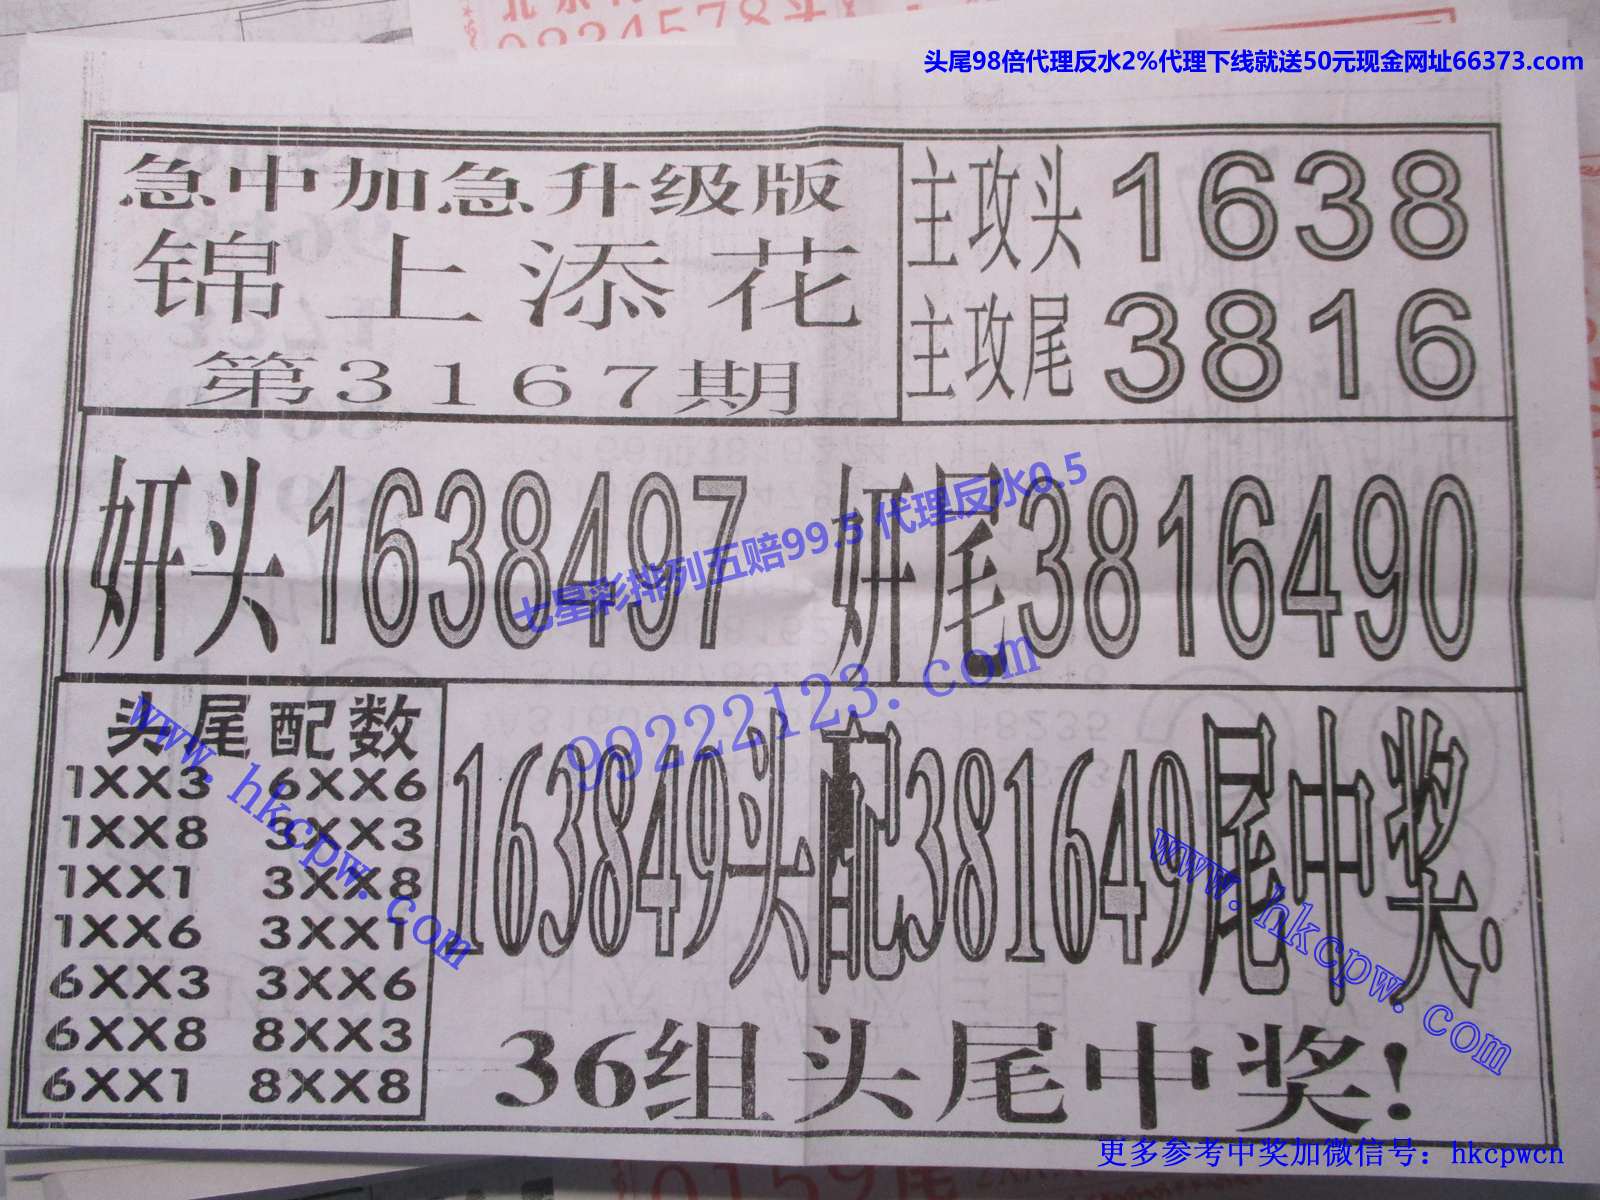 头尾98倍代理反水2%代理下线就送50元现金网址66373.com
急中加急升级版
锦上添花
第3167期
主攻头1638
主攻尾3816
妍头1638497
妍尾3816490
七星彩排列五赔99.5 代理反水0.5
99222123.com
头尾配数
1XX3 6XX6
1XX8 3XX3
1XX1 3XX8
1XX6 3XX1
6XX3 3XX6
6XX8 8XX3
6XX1 8XX8
163849头配381649尾中奖.
36组头尾中奖!
www.hkcpw.com
www.hkcpw.com
更多参考中奖加微信号：hkcpwcn